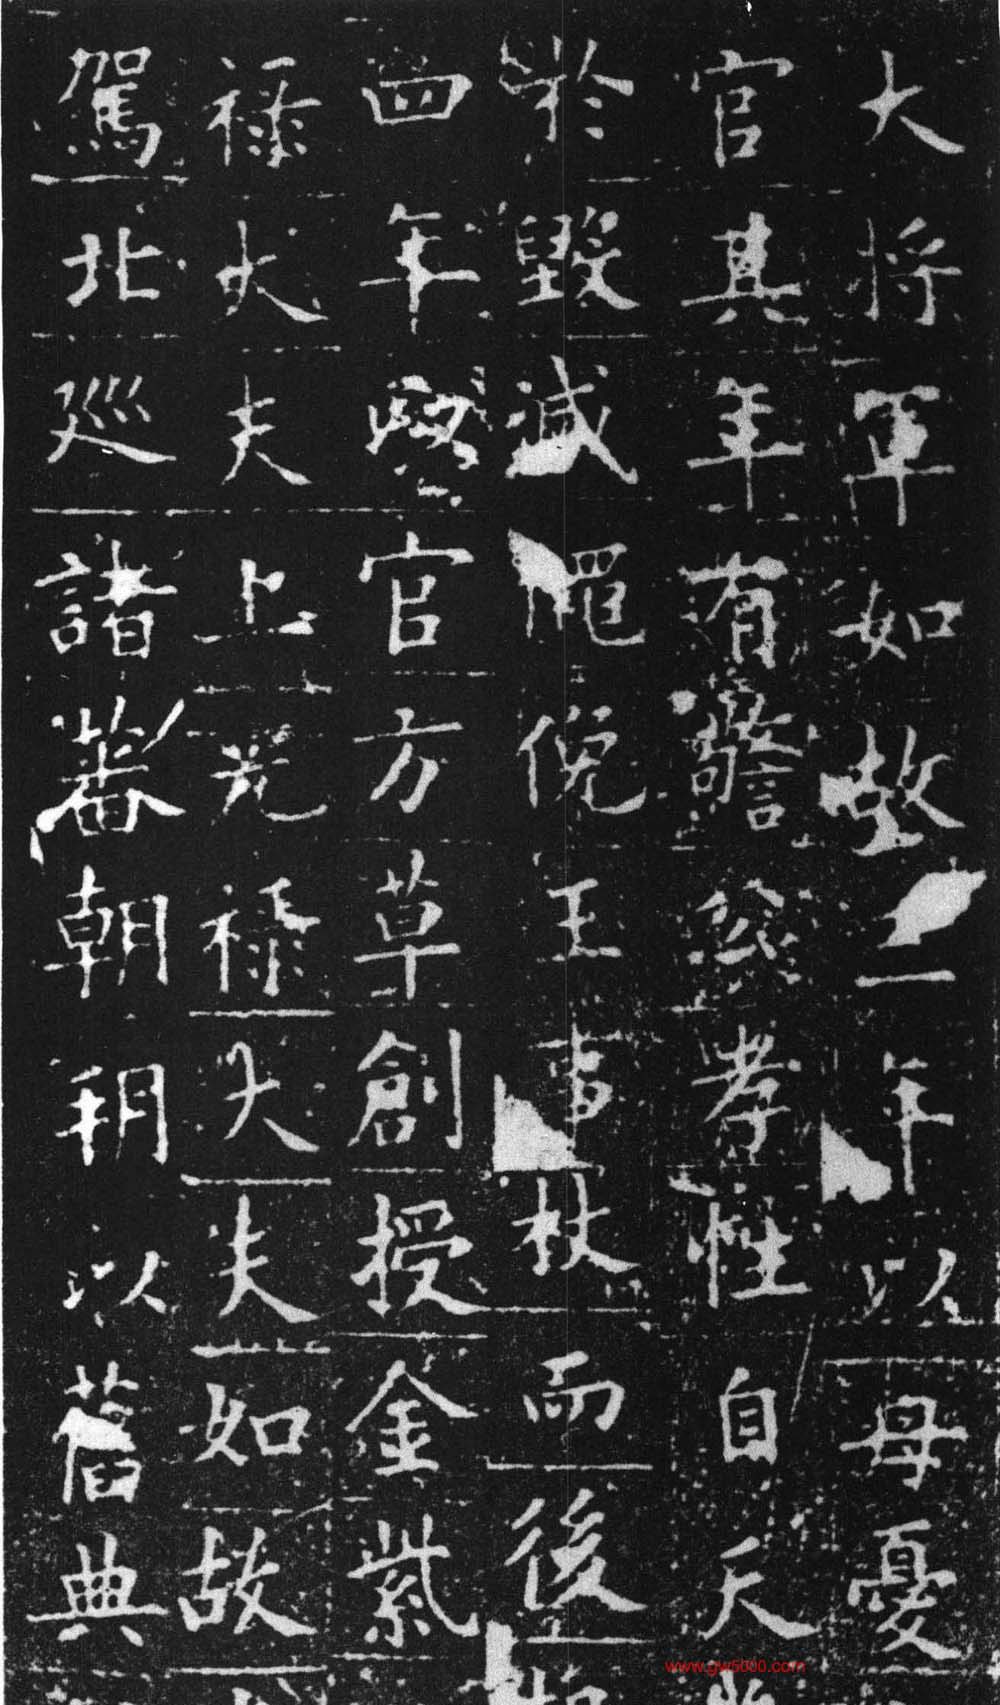 大將軍如故一年以母憂
官其年有詔公孝性自天
於毀滅僶俛王事杖而後
四年改官方草創授金紫
祿大夫上光祿大夫如故
駕北巡諸蕃朝稍以舊典
www.gw5000.com